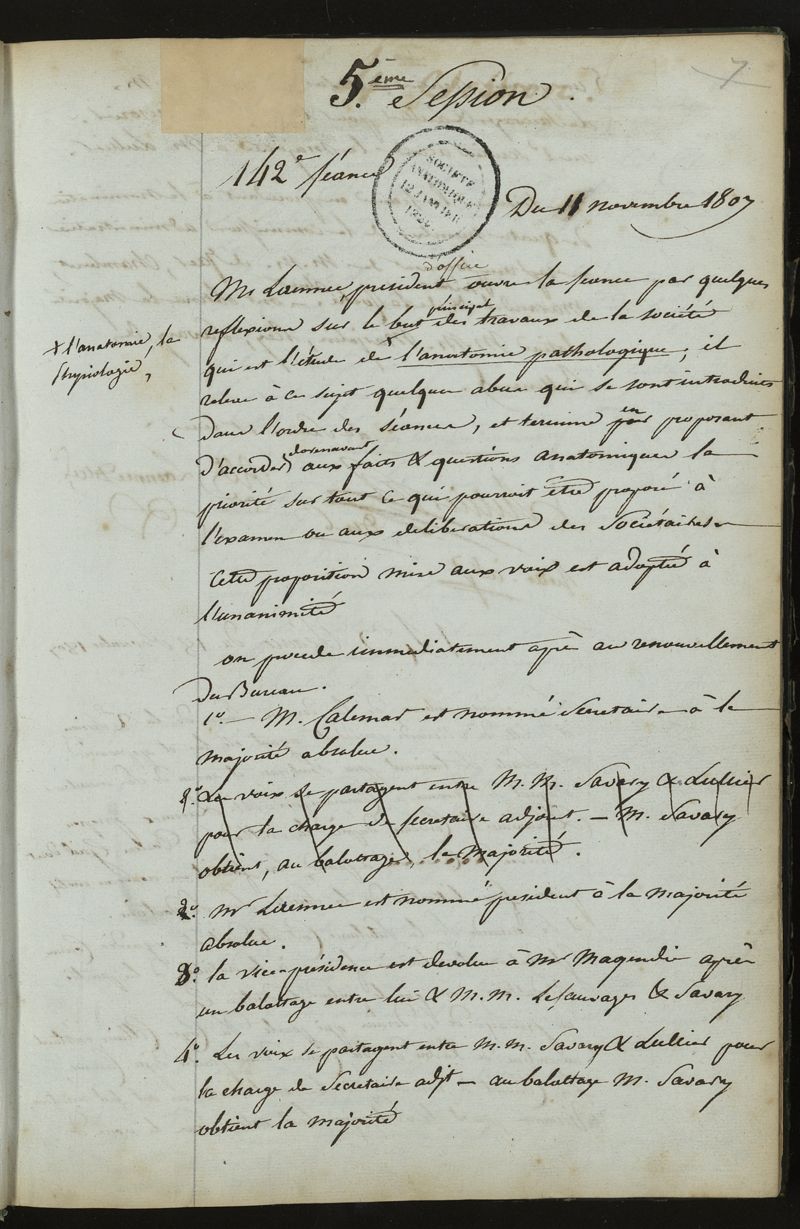 7
5.ème Session.
142e séance
SOCIÉTÉ
ANATOMIQUE
12 JANVIER
Du 11 novembre 1807
d'office
Mr Laennec, président ouvre la séance par quelques
principal
reflexions sur le but des travaux de la société
+ l'anatomie, la
physiologie,
qui est l'étude de l'anatomie pathologique; il
releve à ce sujet quelques abus qui se sont introduits
dans l'ordre des séances, et termine par en proposant
dorenavant
d'accorder aux faits & questions anatomiques la
priorité sur tout ce qui pourroit être proposé à
l'examen ou aux deliberations des Sociétaires
Cette proposition mise aux voix est adoptée à
l'unanimité
on procede immediatement après au renouvellement
du Bureau.
1o. — M. Calemard est nommé Secretaire à la
majorité absolue.
2o. Les voix se partagent entre M.M. Savary & Lullier
pour la charge de secretaire adjoint. — M. Savary
obtient, au balottage, la majorité.
2o. Mr Laennec est nommé président à la majorité
absolue.
3o. la vice-présidence est devolue à Mr Magendie après
un balottage entre lui & M.M. Lesauvages & Savary
4o. Les voix se partagent entre M.M. Savary & Lullier pour
la charge de Secretaire adjt — au balottage M. Savary
obtient la majorité